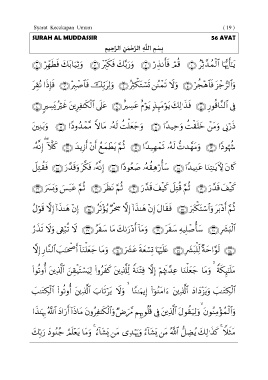 Syarat Kecakapan Umum ( 19 )
SURAH AL MUDDASSIR 56 AYAT
بِسْمِ ٱللَّهِ ٱلرَّحْمَٰنِ ٱلرَّحِيمِ
يَٰٓأَيُّهَا ٱلْمُدَّثِّرُ ۝١ قُمْ فَأَنذِرْ ۝٢ وَرَبَّكَ فَكَبِّرْ ۝٣ وَثِيَابَكَ فَطَهِّرْ ۝٤
وَٱلرُّجْزَ فَٱهْجُرْ ۝٥ وَلَا تَمْنُن تَسْتَكْثِرُ ۝٦ وَلِرَبِّكَ فَٱصْبِرْ ۝٧ فَإِذَا نُقِرَ
فِى ٱلنَّاقُورِ ۝٨ فَذَٰلِكَ يَوْمَئِذٍ يَوْمٌ عَسِيرٌ ۝٩ عَلَى ٱلْكَٰفِرِينَ غَيْرُ يَسِيرٍ ۝١٠
ذَرْنِى وَمَنْ خَلَقْتُ وَحِيدًا ۝١١ وَجَعَلْتُ لَهُۥ مَالًا مَّمْدُودًا ۝١٢ وَبَنِينَ
شُهُودًا ۝١٣ وَمَهَّدتُّ لَهُۥ تَمْهِيدًا ۝١٤ ثُمَّ يَطْمَعُ أَنْ أَزِيدَ ۝١٥ كَلَّآ ۖ إِنَّهُۥ
كَانَ لِءَايَٰتِنَا عَنِيدًا ۝١٦ سَأُرْهِقُهُۥ صَعُودًا ۝١٧ إِنَّهُۥ فَكَّرَ وَقَدَّرَ ۝١٨ فَقُتِلَ
كَيْفَ قَدَّرَ ۝١٩ ثُمَّ قُتِلَ كَيْفَ قَدَّرَ ۝٢٠ ثُمَّ نَظَرَ ۝٢١ ثُمَّ عَبَسَ وَبَسَرَ ۝٢٢
ثُمَّ أَدْبَرَ وَٱسْتَكْبَرَ ۝٢٣ فَقَالَ إِنْ هَٰذَآ إِلَّا سِحْرٌ يُؤْثَرُ ۝٢٤ إِنْ هَٰذَآ إِلَّا قَوْلُ
ٱلْبَشَرِ ۝٢٥ سَأُصْلِيهِ سَقَرَ ۝٢٦ وَمَآ أَدْرَىٰكَ مَا سَقَرُ ۝٢٧ لَا تُبْقِى وَلَا تَذَرُ ۝٢٨
لَوَّاحَةٌ لِّلْبَشَرِ ۝٢٩ عَلَيْهَا تِسْعَةَ عَشَرَ ۝٣٠ وَمَا جَعَلْنَآ أَصْحَٰبَ ٱلنَّارِ إِلَّا
مَلَٰٓئِكَةً ۙ وَمَا جَعَلْنَا عِدَّتَهُمْ إِلَّا فِتْنَةً لِّلَّذِينَ كَفَرُوا۟ لِيَسْتَيْقِنَ ٱلَّذِينَ أُوتُوا۟
ٱلْكِتَٰبَ وَيَزْدَادَ ٱلَّذِينَ ءَامَنُوٓا۟ إِيمَٰنًا ۙ وَلَا يَرْتَابَ ٱلَّذِينَ أُوتُوا۟ ٱلْكِتَٰبَ
وَٱلْمُؤْمِنُونَ ۙ وَلِيَقُولَ ٱلَّذِينَ فِى قُلُوبِهِم مَّرَضٌ وَٱلْكَٰفِرُونَ مَاذَآ أَرَادَ ٱللَّهُ بِهَٰذَا
مَثَلًا ۚ كَذَٰلِكَ يُضِلُّ ٱللَّهُ مَن يَشَآءُ وَيَهْدِى مَن يَشَآءُ ۚ وَمَا يَعْلَمُ جُنُودَ رَبِّكَ